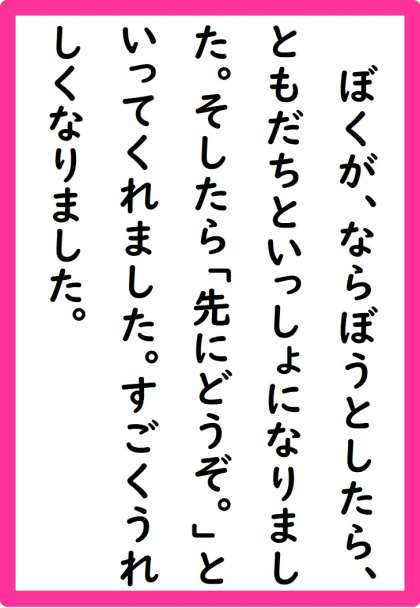 ぼくが、ならぼうとしたら、
ともだちといっしょになりまし
た。そしたら「先にどうぞ。」と
いってくれました。すごくうれ
しくなりました。